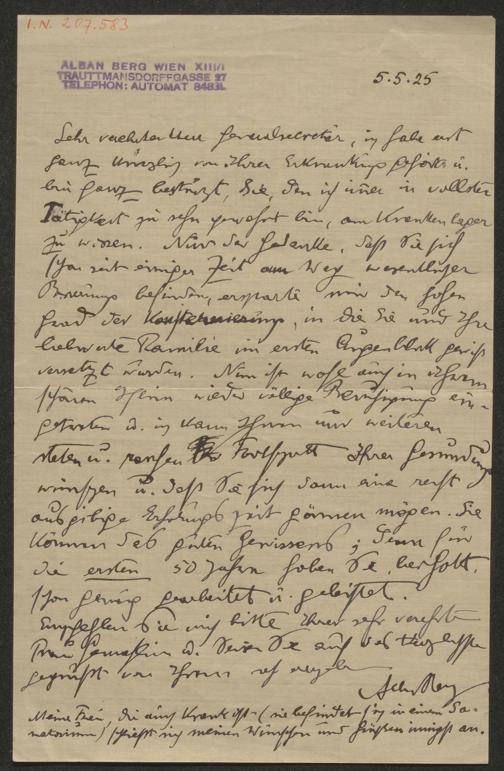 I.N. 207.583
ALBAN BERG WIEN XIII/1
TRAUTTMANSDORFFGASSE 27
TELEPHON: AUTOMAT 84831
5.5.25
Sehr verehrter Herr Generalsecretär, ich habe erst
ganz kürzlich von Ihrer Erkrankung gehört u.
bin ganz bestürzt, Sie, den ich immer in vollster
Tätigkeit zu sehn gewohnt bin, am Krankenlager
zu wissen. Nur der Gedanke, daß Sie sich
schon seit einiger Zeit am Weg wesentlicher
Besserung befinden, ersparte mir den hohen
Grad der Konsternierung, in die Sie und Ihre
liebwerte Familie im ersten Augenblick gewiß
versetzt wurden. Nun ist wohl auch in Ihrem
schönen Heim wieder völlige Beruhigung ein-
getreten u. ich kann Ihnen nur weiteren
steten u. raschen Fortschritt Ihrer Gesundung
wünschen u. daß Sie sich dann eine recht
ausgiebige Erholungszeit gönnen mögen. Sie
können das guten Gewissens; denn für
die ersten 50 Jahre haben Sie, bei Gott,
schon genug gearbeitet u. geleistet.
Empfehlen Sie mich bitte Ihrer sehr verehrten
Frau Gemahlin u. seien Sie auf das herzlichste
gegrüßt von Ihrem sehr
Alban Berg
Meine Frau, die auch krank ist (sie befindet sich in einem Sa-
natorium) schließt sich meinen Wünschen und Grüßen innigst an.